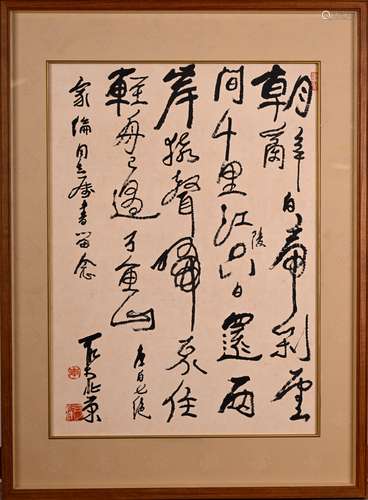 朝辭白帝彩雲
間千里江陵一日還兩
岸猿聲啼不住
輕舟已過万重山
李白七絕
家倫同志屬書留念